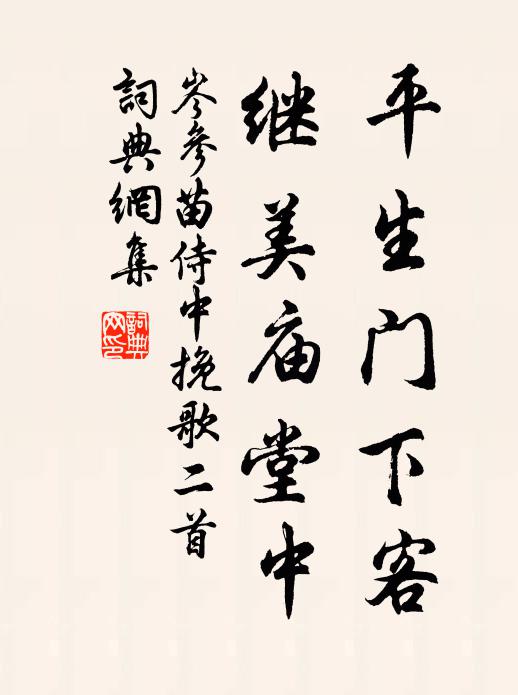 平生门下客
继美庙堂中
岑參苗侍中挽歌二首
詞典網集
詞典
网印